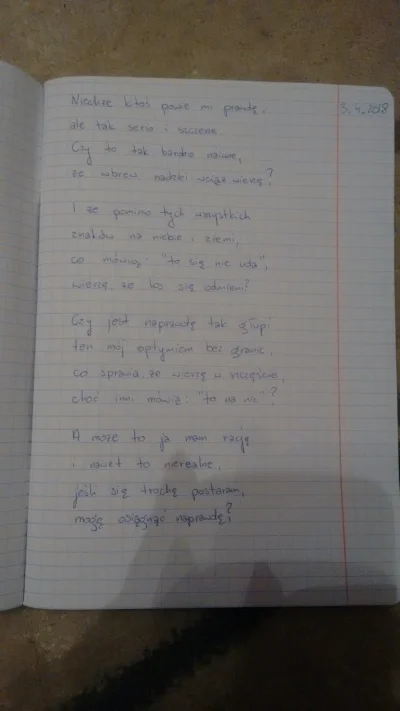 Niechże ktoś powie mi prawdę,
3.4.2018
ale tak serio i szczerze.
Czy to tak bardzo naiwne,
że wbrew nadziei wciąż wierzę?
I że pomimo tych wszystkich
znaków na niebie i ziemi,
co mówią: "to się nie uda",
wierzę, że los się odmieni?
Czy jest naprawdę tak głupi
ten mój optymizm bez granic,
co sprawia, że wierzę w szczęście,
choć inni mówią: "to na nic"?
A może to ja mam rację
i nawet to nierealne,
jeśli się trochę postaram,
mogę osiągnąć naprawdę?